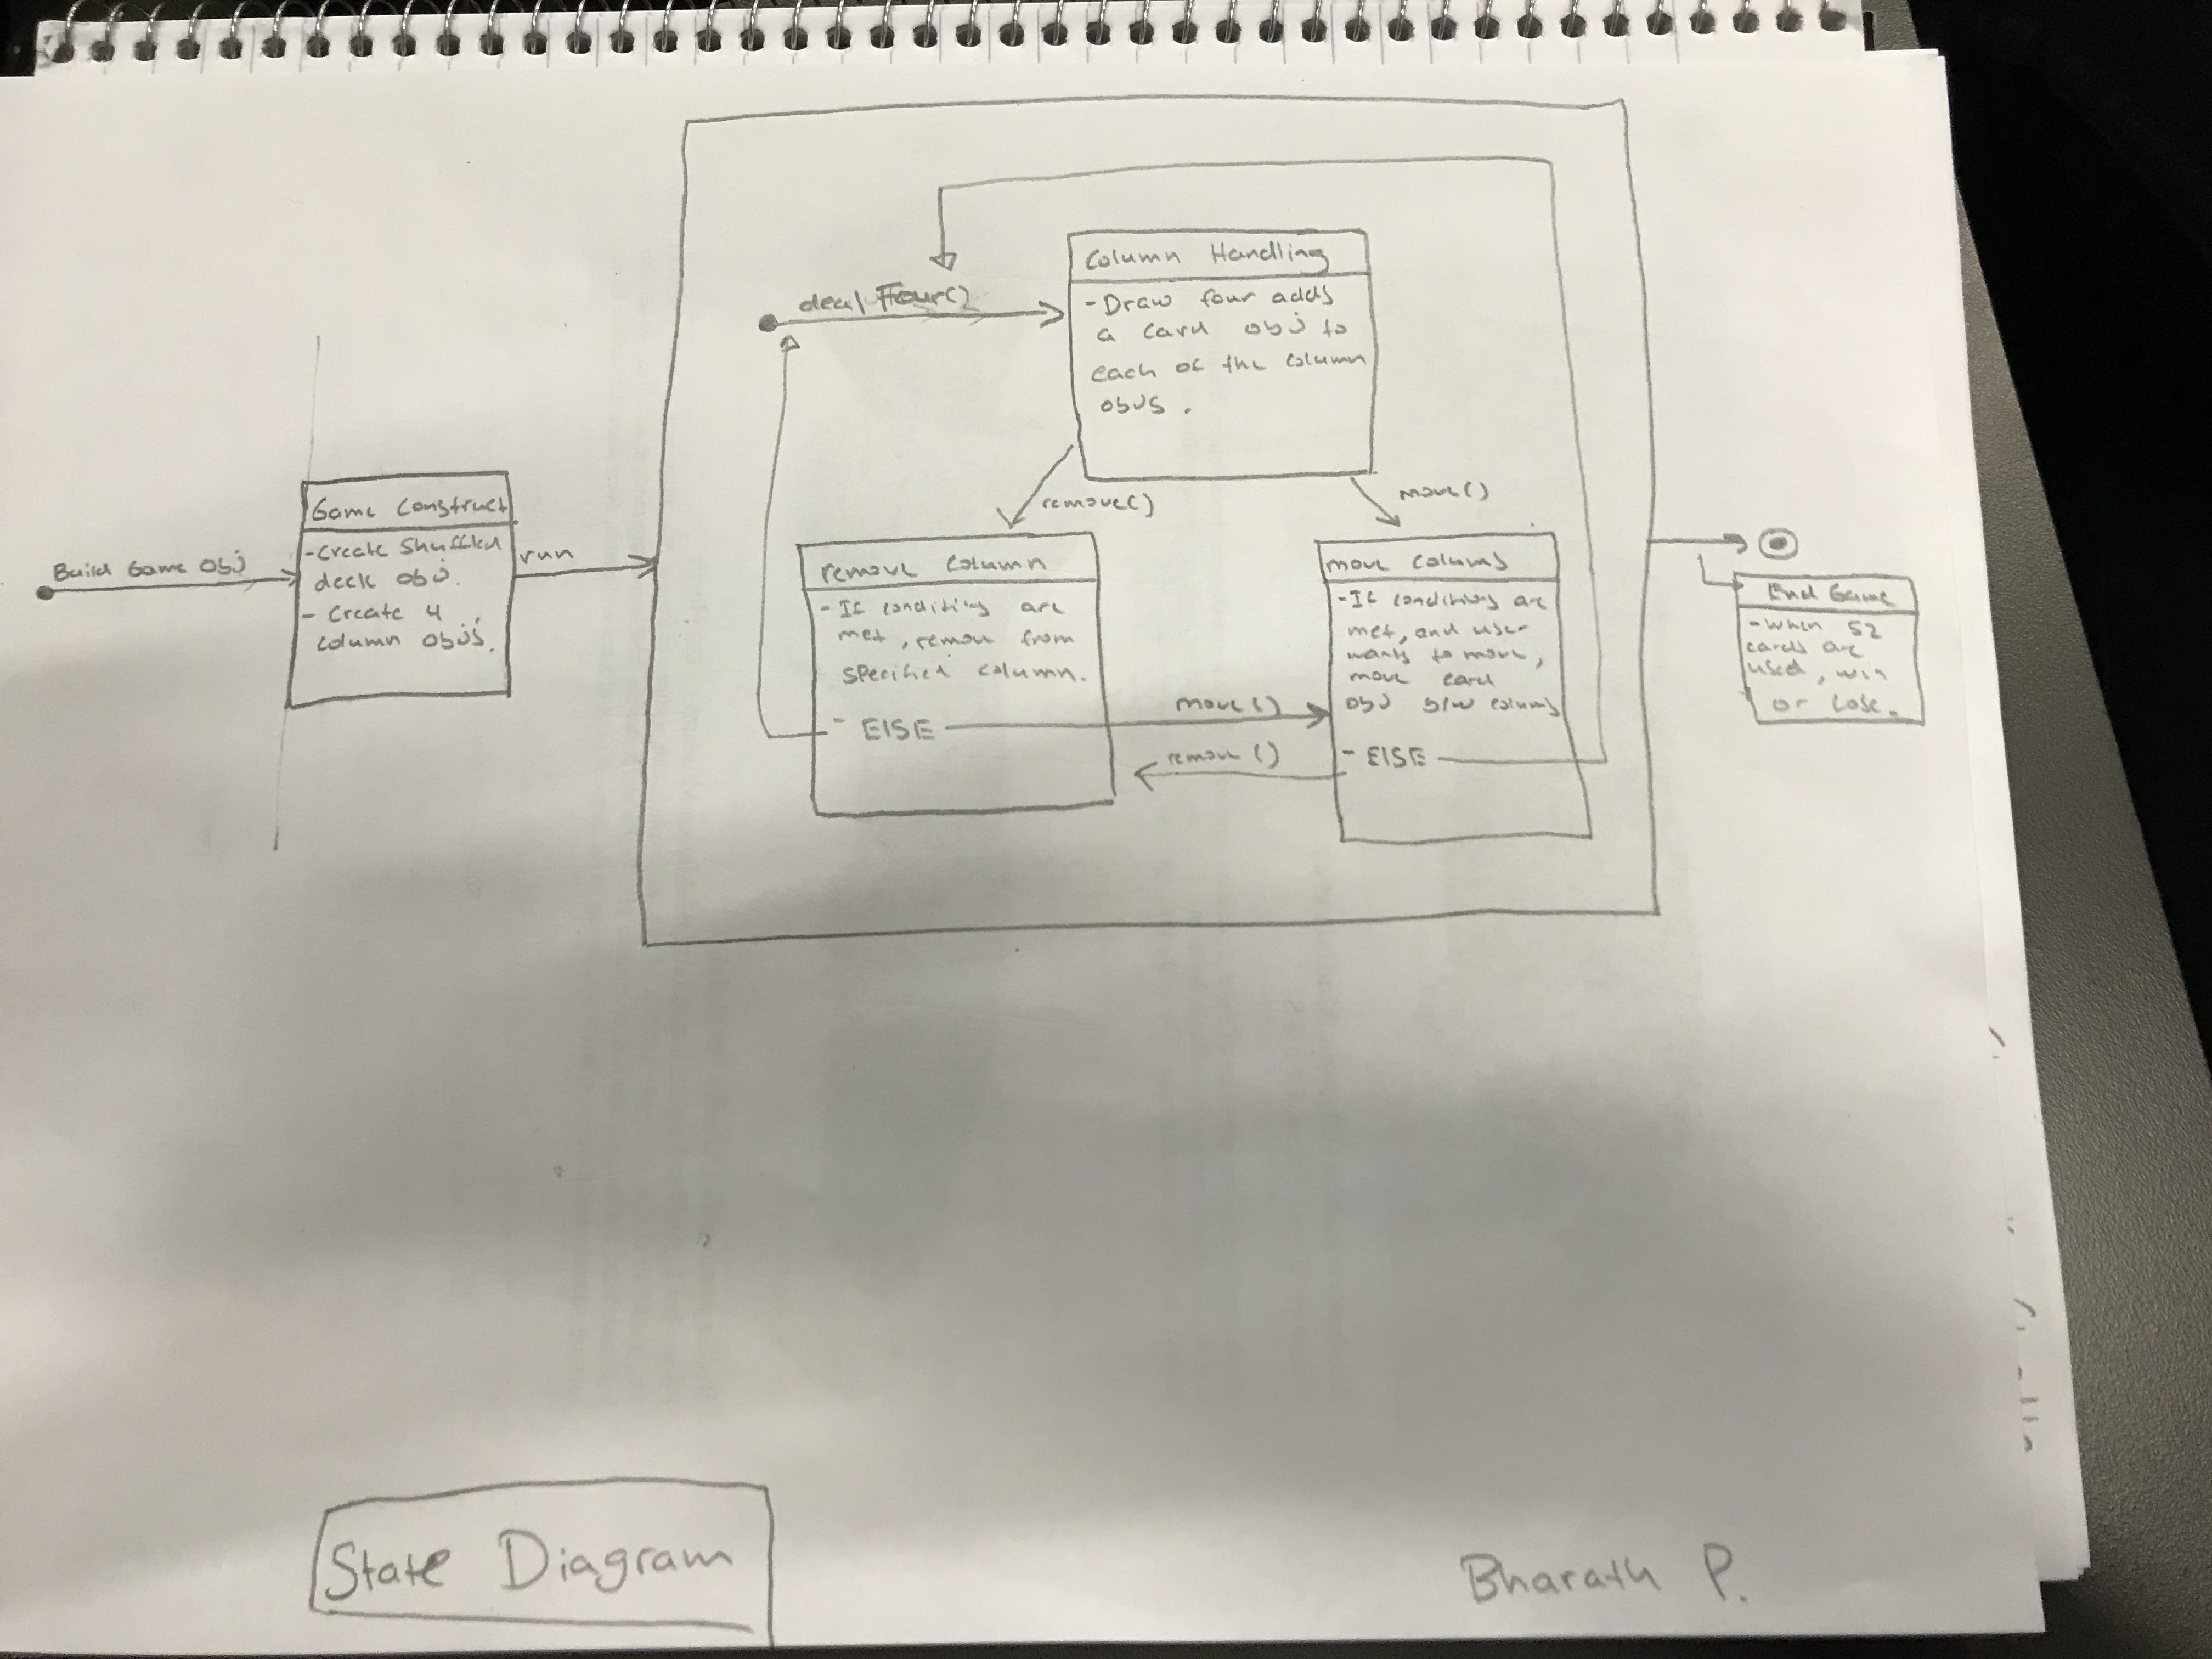 Build Game Obj
Game Construct
-Create Shuffled
deck obj.
- Create 4
column objs.
run
deal Four()
Column Handling
-Draw four adds
a card obj to
each of the column
objs.
remove()
move()
remove column
- If conditions are
met, remove from
specified column.
- ElSE
move()
remove()
move columns
-If conditions are
met, and user
wants to move,
move card
obj b/w columns
- ElSE
End Game
-when 52
cards are
used, win
or lose.
State Diagram
Bharath P.